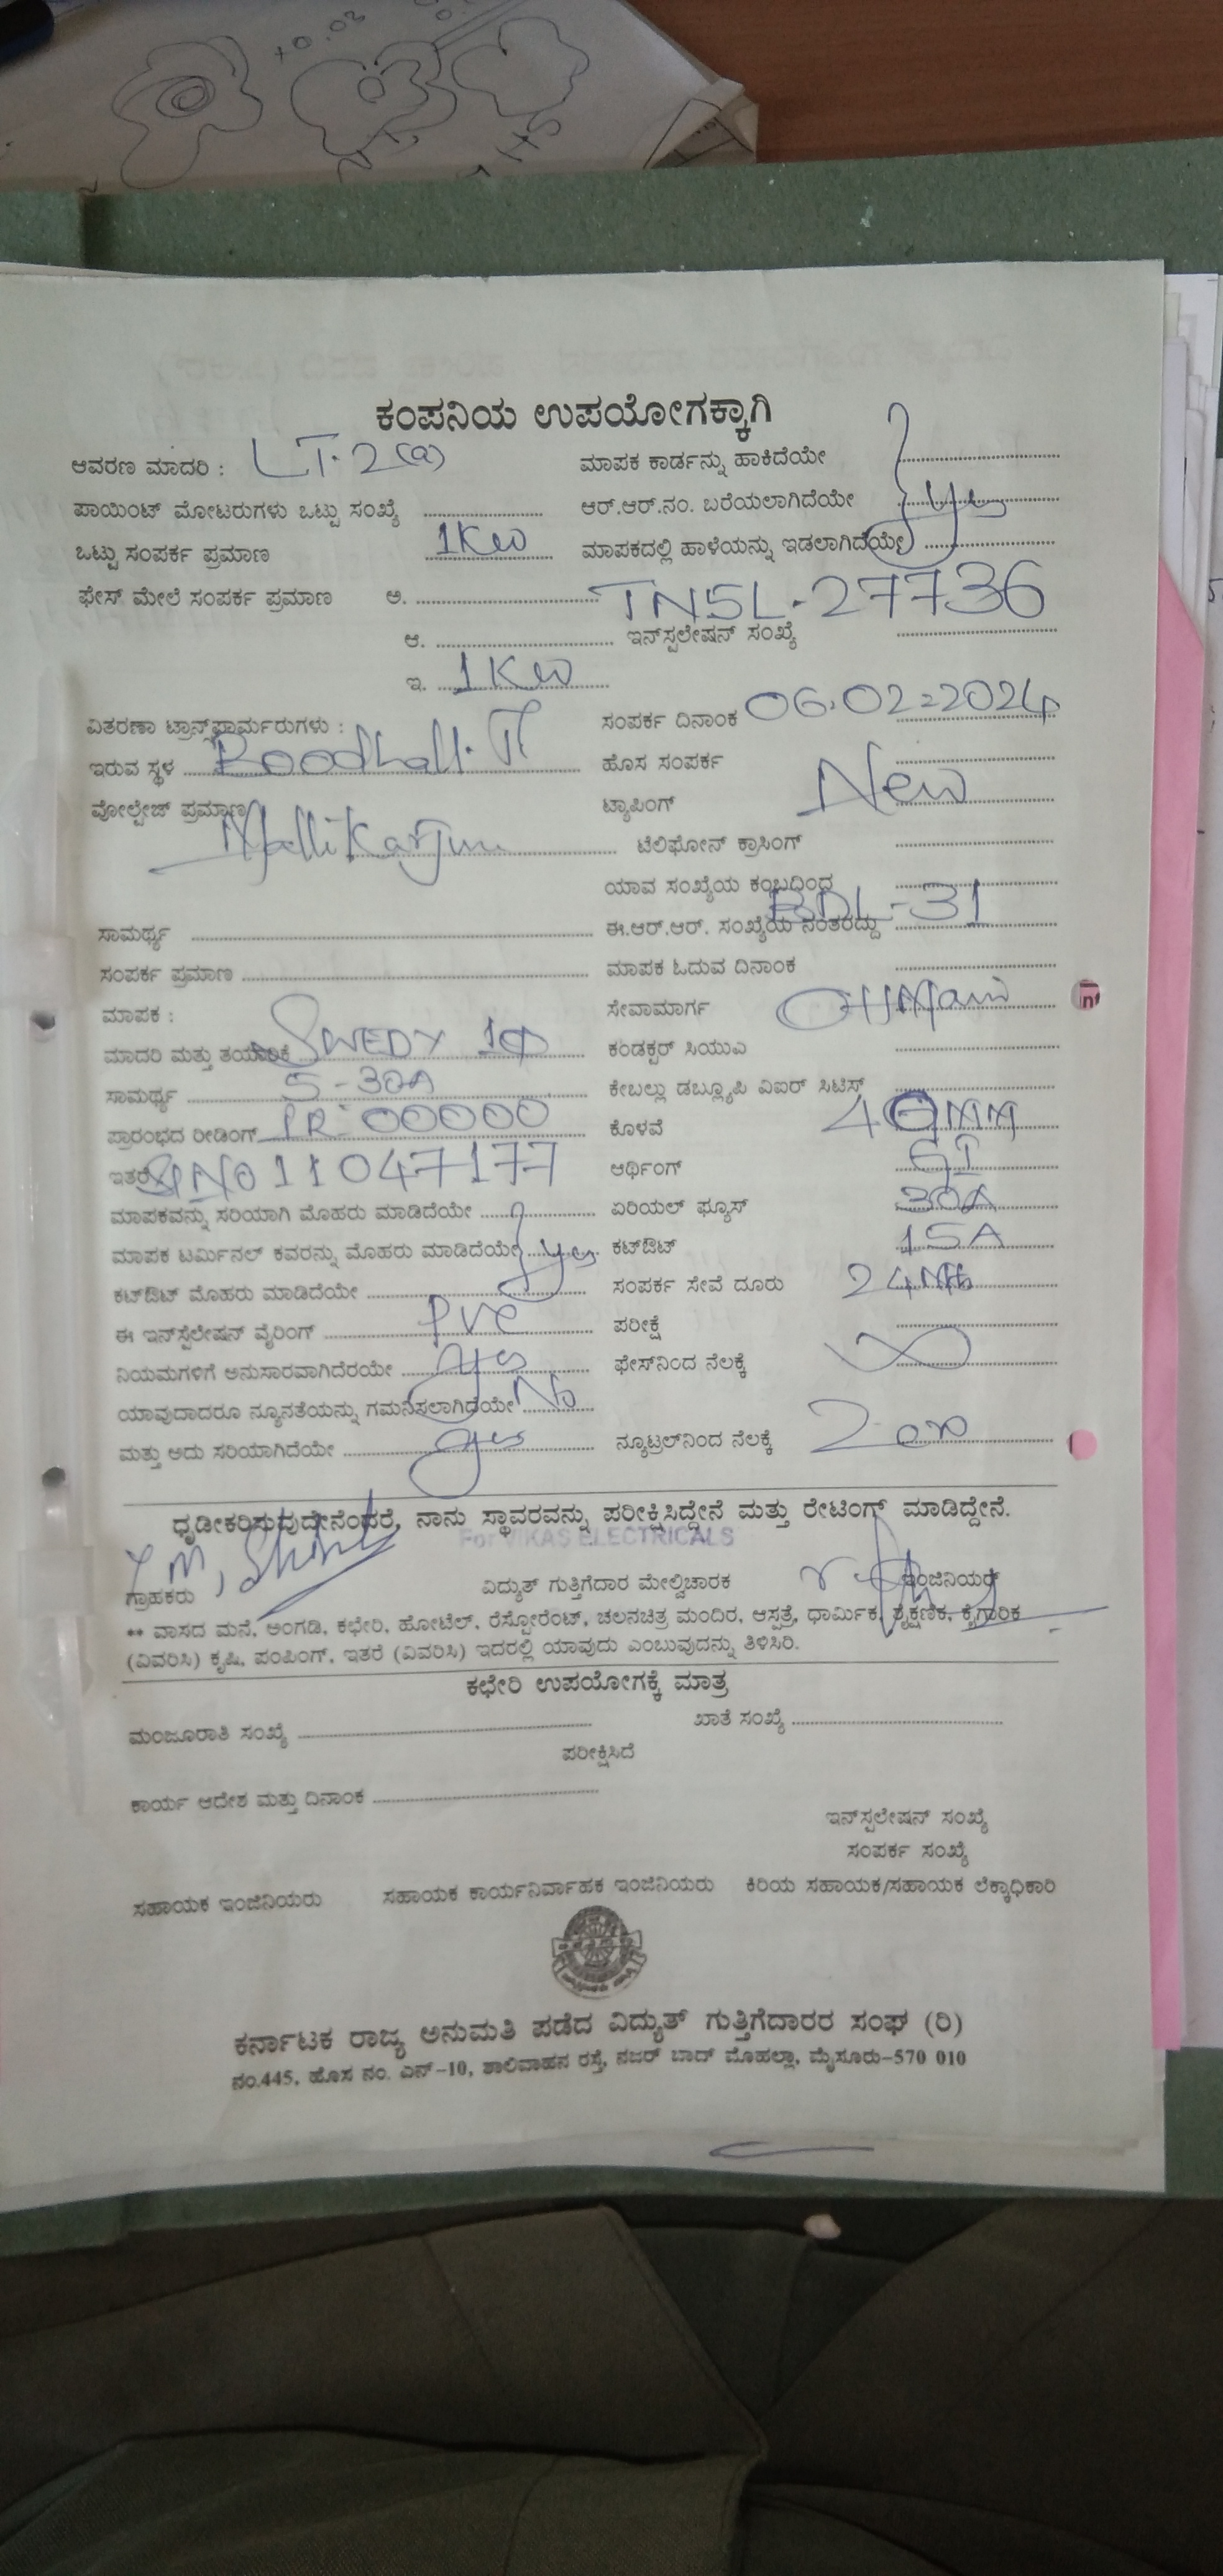 ಕಂಪನಿಯ ಉಪಯೋಗಕ್ಕಾಗಿ
ಆವರಣ ಮಾದರಿ : LT-2(a) ಮಾಪಕ ಕಾರ್ಡನ್ನು ಹಾಕಿದೆಯೇ
ಪಾಯಿಂಟ್ ಮೋಟರುಗಳು ಒಟ್ಟು ಸಂಖ್ಯೆ ಆರ್.ಆರ್.ನಂ. ಬರೆಯಲಾಗಿದೆಯೇ yes
ಒಟ್ಟು ಸಂಪರ್ಕ ಪ್ರಮಾಣ 1KW ಮಾಪಕದಲ್ಲಿ ಹಾಳೆಯನ್ನು ಇಡಲಾಗಿದೆಯೇ
ಫೇಸ್ ಮೇಲೆ ಸಂಪರ್ಕ ಪ್ರಮಾಣ ಅ. TNSL-27736
ಆ. ಇನ್‌ಸ್ಪಲೇಷನ್ ಸಂಖ್ಯೆ
ಇ. 1KW
ವಿತರಣಾ ಟ್ರಾನ್ಸ್‌ಫಾರ್ಮರುಗಳು : ಸಂಪರ್ಕ ದಿನಾಂಕ 06.02-2024
ಇರುವ ಸ್ಥಳ ಹೊಸ ಸಂಪರ್ಕ
ವೋಲ್ಟೇಜ್ ಪ್ರಮಾಣ Mallikarjun ಟ್ಯಾಪಿಂಗ್ New
ಟೆಲಿಫೋನ್ ಕ್ರಾಸಿಂಗ್
ಯಾವ ಸಂಖ್ಯೆಯ ಕಂಬದಿಂದ
ಸಾಮರ್ಥ್ಯ ಈ.ಆರ್.ಆರ್. ಸಂಖ್ಯೆಯ ನಂತರದ್ದು BDL-31
ಸಂಪರ್ಕ ಪ್ರಮಾಣ ಮಾಪಕ ಓದುವ ದಿನಾಂಕ
ಮಾಪಕ : ಸೇವಾಮಾರ್ಗ
ಮಾದರಿ ಮತ್ತು ತಯಾರಿಕೆ SWEDY 1Φ ಕಂಡಕ್ಟರ್ ಸಿಯುಎ
ಸಾಮರ್ಥ್ಯ 5-30A ಕೇಬಲ್ಲು ಡಬ್ಲ್ಯೂಪಿ ವಿಐರ್ ಸಿಟಿಸ್ಸ್
ಪ್ರಾರಂಭದ ರೀಡಿಂಗ್ IR-00000 ಕೊಳವೆ
ಇತರೆ Sl No 11047177 ಆರ್ಥಿಂಗ್ GI
ಮಾಪಕವನ್ನು ಸರಿಯಾಗಿ ಮೊಹರು ಮಾಡಿದೆಯೇ ಏರಿಯಲ್ ಫ್ಯೂಸ್ 30A
ಮಾಪಕ ಟರ್ಮಿನಲ್ ಕವರನ್ನು ಮೊಹರು ಮಾಡಿದೆಯೇ yes ಕಟ್‌ಔಟ್ 15A
ಕಟ್‌ಔಟ್ ಮೊಹರು ಮಾಡಿದೆಯೇ ಸಂಪರ್ಕ ಸೇವೆ ದೂರು
ಈ ಇನ್‌ಸ್ಪಲೇಷನ್ ವೈರಿಂಗ್ PVC ಪರೀಕ್ಷೆ
ನಿಯಮಗಳಿಗೆ ಅನುಸಾರವಾಗಿದೆರಯೇ yes ಫೇಸ್‌ನಿಂದ ನೆಲಕ್ಕೆ ∞
ಯಾವುದಾದರೂ ನ್ಯೂನತೆಯನ್ನು ಗಮನಿಸಲಾಗಿದೆಯೇ No
ಮತ್ತು ಅದು ಸರಿಯಾಗಿದೆಯೇ yes ನ್ಯೂಟ್ರಲ್‌ನಿಂದ ನೆಲಕ್ಕೆ Zero
ಧೃಡೀಕರಿಸುವುದೇನೆಂದರೆ, ನಾನು ಸ್ಥಾವರವನ್ನು ಪರೀಕ್ಷಿಸಿದ್ದೇನೆ ಮತ್ತು ರೇಟಿಂಗ್ ಮಾಡಿದ್ದೇನೆ.
For VIKAS ELECTRICALS
ಗ್ರಾಹಕರು ವಿದ್ಯುತ್ ಗುತ್ತಿಗೆದಾರ ಮೇಲ್ವಿಚಾರಕ ಇಂಜಿನಿಯರ್
** ವಾಸದ ಮನೆ, ಅಂಗಡಿ, ಕಛೇರಿ, ಹೋಟೆಲ್, ರೆಸ್ಟೋರೆಂಟ್, ಚಲನಚಿತ್ರ ಮಂದಿರ, ಆಸ್ಪತ್ರೆ, ಧಾರ್ಮಿಕ, ಶೈಕ್ಷಣಿಕ, ಕೈಗಾರಿಕ
(ವಿವರಿಸಿ) ಕೃಷಿ, ಪಂಪಿಂಗ್, ಇತರೆ (ವಿವರಿಸಿ) ಇದರಲ್ಲಿ ಯಾವುದು ಎಂಬುವುದನ್ನು ತಿಳಿಸಿರಿ.
ಕಛೇರಿ ಉಪಯೋಗಕ್ಕೆ ಮಾತ್ರ
ಮಂಜೂರಾತಿ ಸಂಖ್ಯೆ ಖಾತೆ ಸಂಖ್ಯೆ
ಪರೀಕ್ಷಿಸಿದೆ
ಕಾರ್ಯ ಆದೇಶ ಮತ್ತು ದಿನಾಂಕ
ಇನ್‌ಸ್ಪಲೇಷನ್ ಸಂಖ್ಯೆ
ಸಂಪರ್ಕ ಸಂಖ್ಯೆ
ಸಹಾಯಕ ಇಂಜಿನಿಯರು ಸಹಾಯಕ ಕಾರ್ಯನಿರ್ವಾಹಕ ಇಂಜಿನಿಯರು ಕಿರಿಯ ಸಹಾಯಕ/ಸಹಾಯಕ ಲೆಕ್ಕಾಧಿಕಾರಿ
ಕರ್ನಾಟಕ ರಾಜ್ಯ ಅನುಮತಿ ಪಡೆದ ವಿದ್ಯುತ್ ಗುತ್ತಿಗೆದಾರರ ಸಂಘ (ರಿ)
ನಂ.445, ಹೊಸ ನಂ. ಎನ್-10, ಶಾಲಿವಾಹನ ರಸ್ತೆ, ನಜರ್ ಬಾದ್ ಮೊಹಲ್ಲಾ, ಮೈಸೂರು-570 010